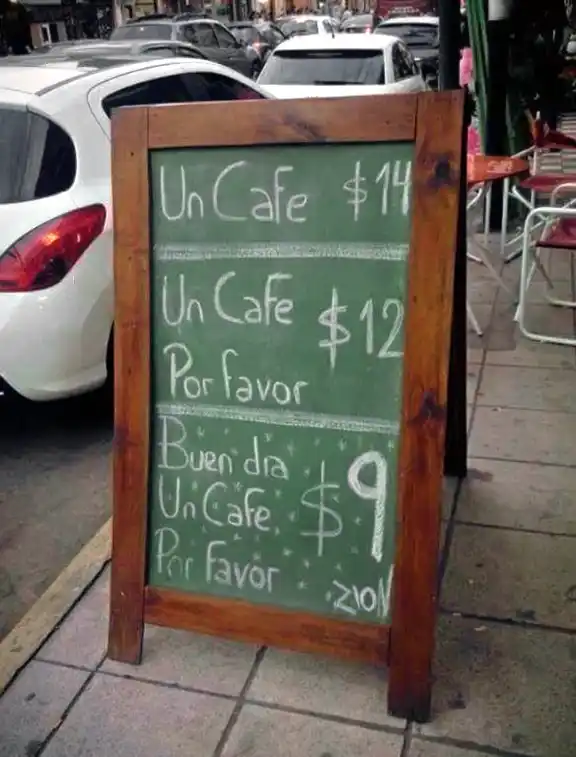 Un Cafe $14
Un Cafe $12
Por favor
Buen dia
Un Cafe $9
Por favor
ZION